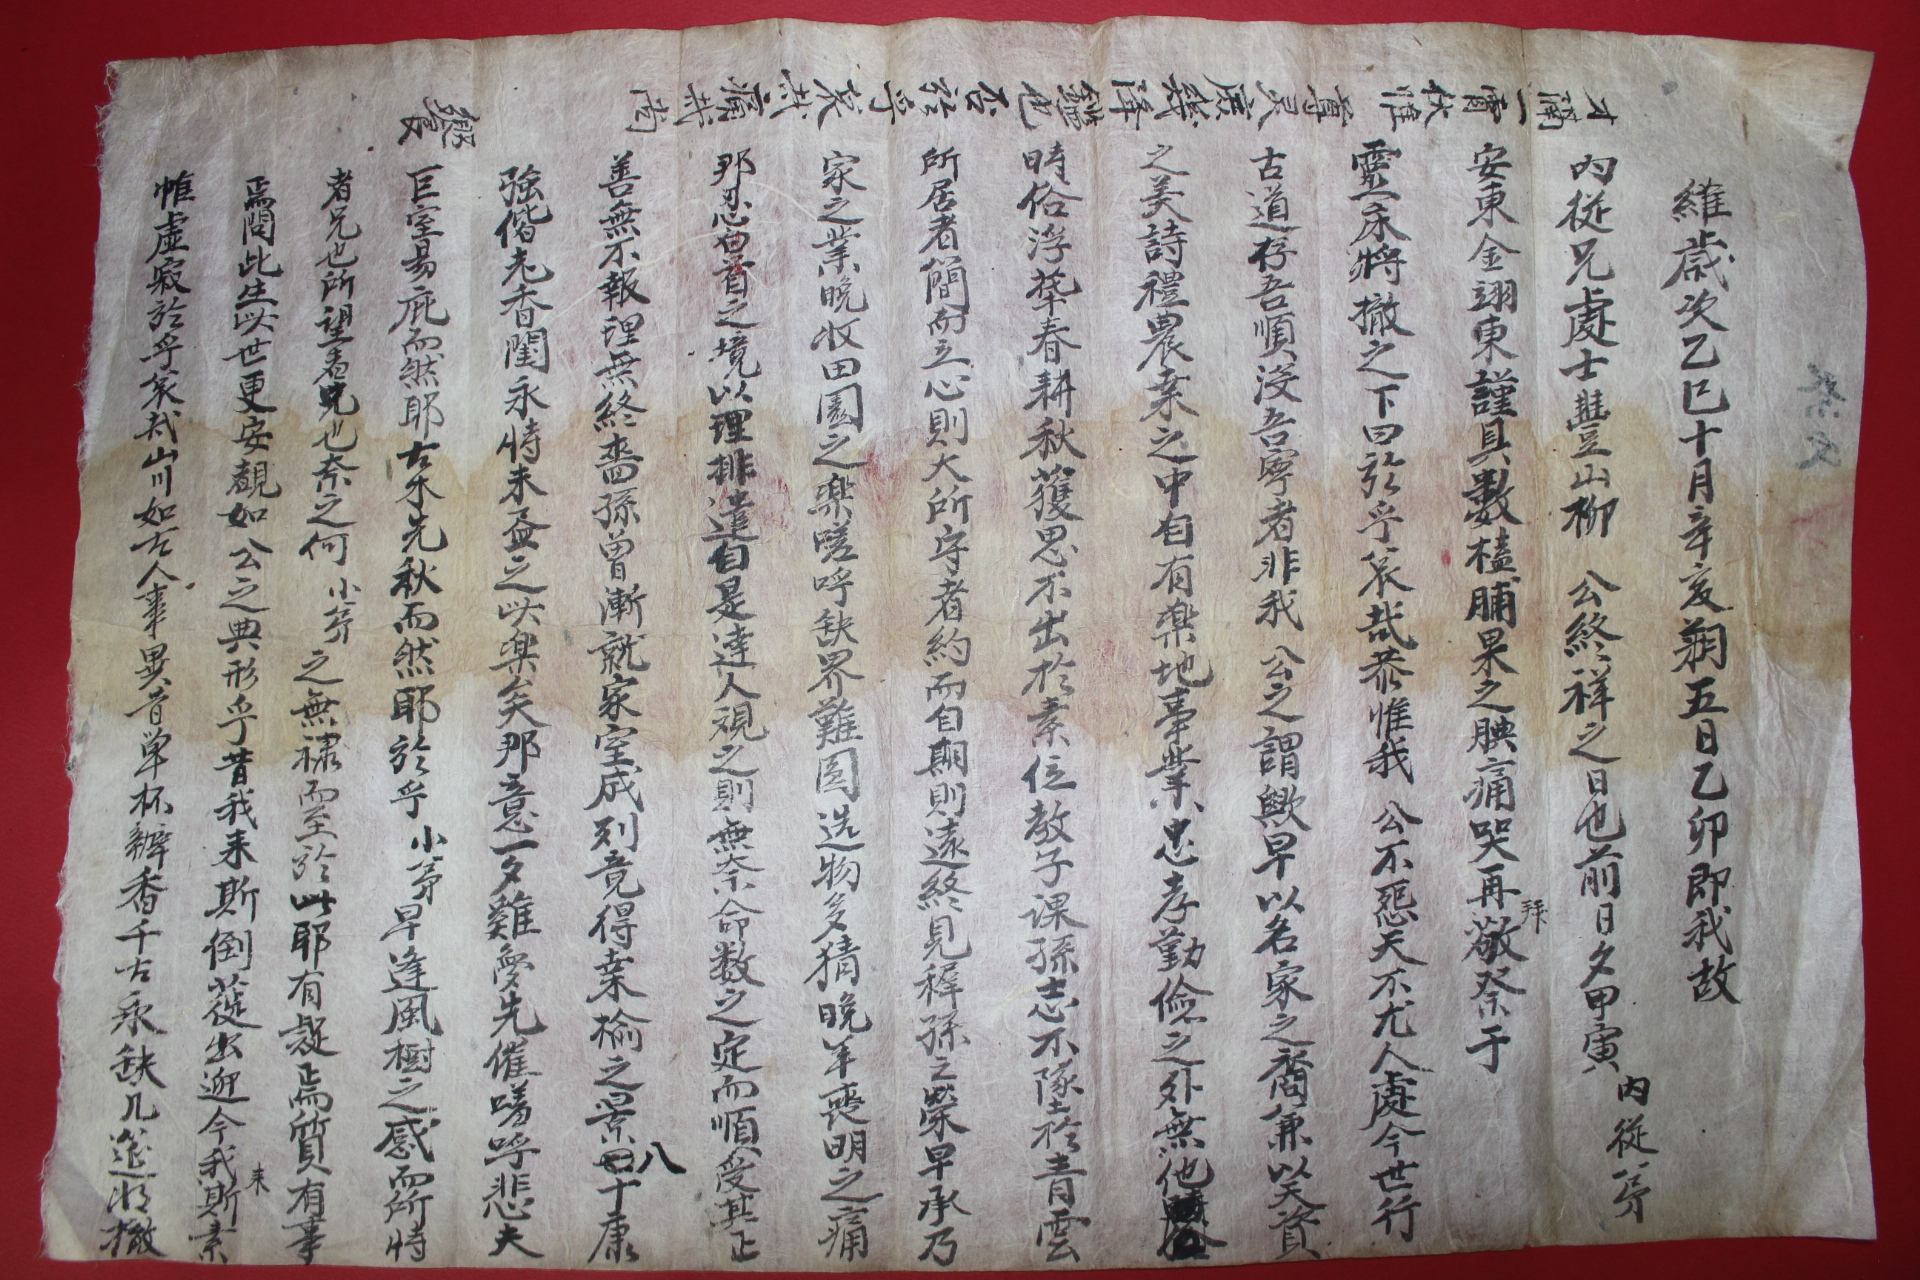 維歲次乙巳十月辛亥朔五日乙卯卽我故
內從兄處士豊山柳 公終祥之日也前日夕甲寅 內從弟
安東金翊東謹具數榼脯果之腆痛哭再拜敬祭于
靈床將撤之下曰於乎哀哉恭惟我 公不怨天不尤人處今世行
古道存吾順沒吾寧者非我 公之謂歟早以名家之裔兼以天資
之美詩禮農桑之中自有樂地事業忠孝勤儉之外無他
時俗浮華春耕秋穫思不出於素位敎子課孫志不墜於靑雲
所居者簡而立心則大所守者約而自期則遠終見稺孫之榮早承乃
家之業晩收田園之樂嗟呼缺界難圓造物多猜晩年喪明之痛
那忍白首之境以理排遣自是達人視之則無奈命數之定而順受其正
善無不報理無終嗇四孫曾漸就家室成列竟得桑楡之景八十康
強偕老香閨永恃來益之娛樂矣那意一夕難夢先催嗚呼悲夫
巨室易庇而然耶古木先秋而然耶於乎小弟早逢風樹之感而所恃
者兄也所望者兄也奈之何 小弟之無祿而至於此耶有疑焉質有事
焉問此生此世更安覩如 公之典形乎昔我來斯倒屣出迎今我來斯素
帷虛寂於乎哀哉山川如古人事異昔單杯瓣香千古永缺几筵將撤
一實伏惟
尊灵
庶幾降
鑑也
否於乎
哀哉
痛哉
尙
饗
祭文